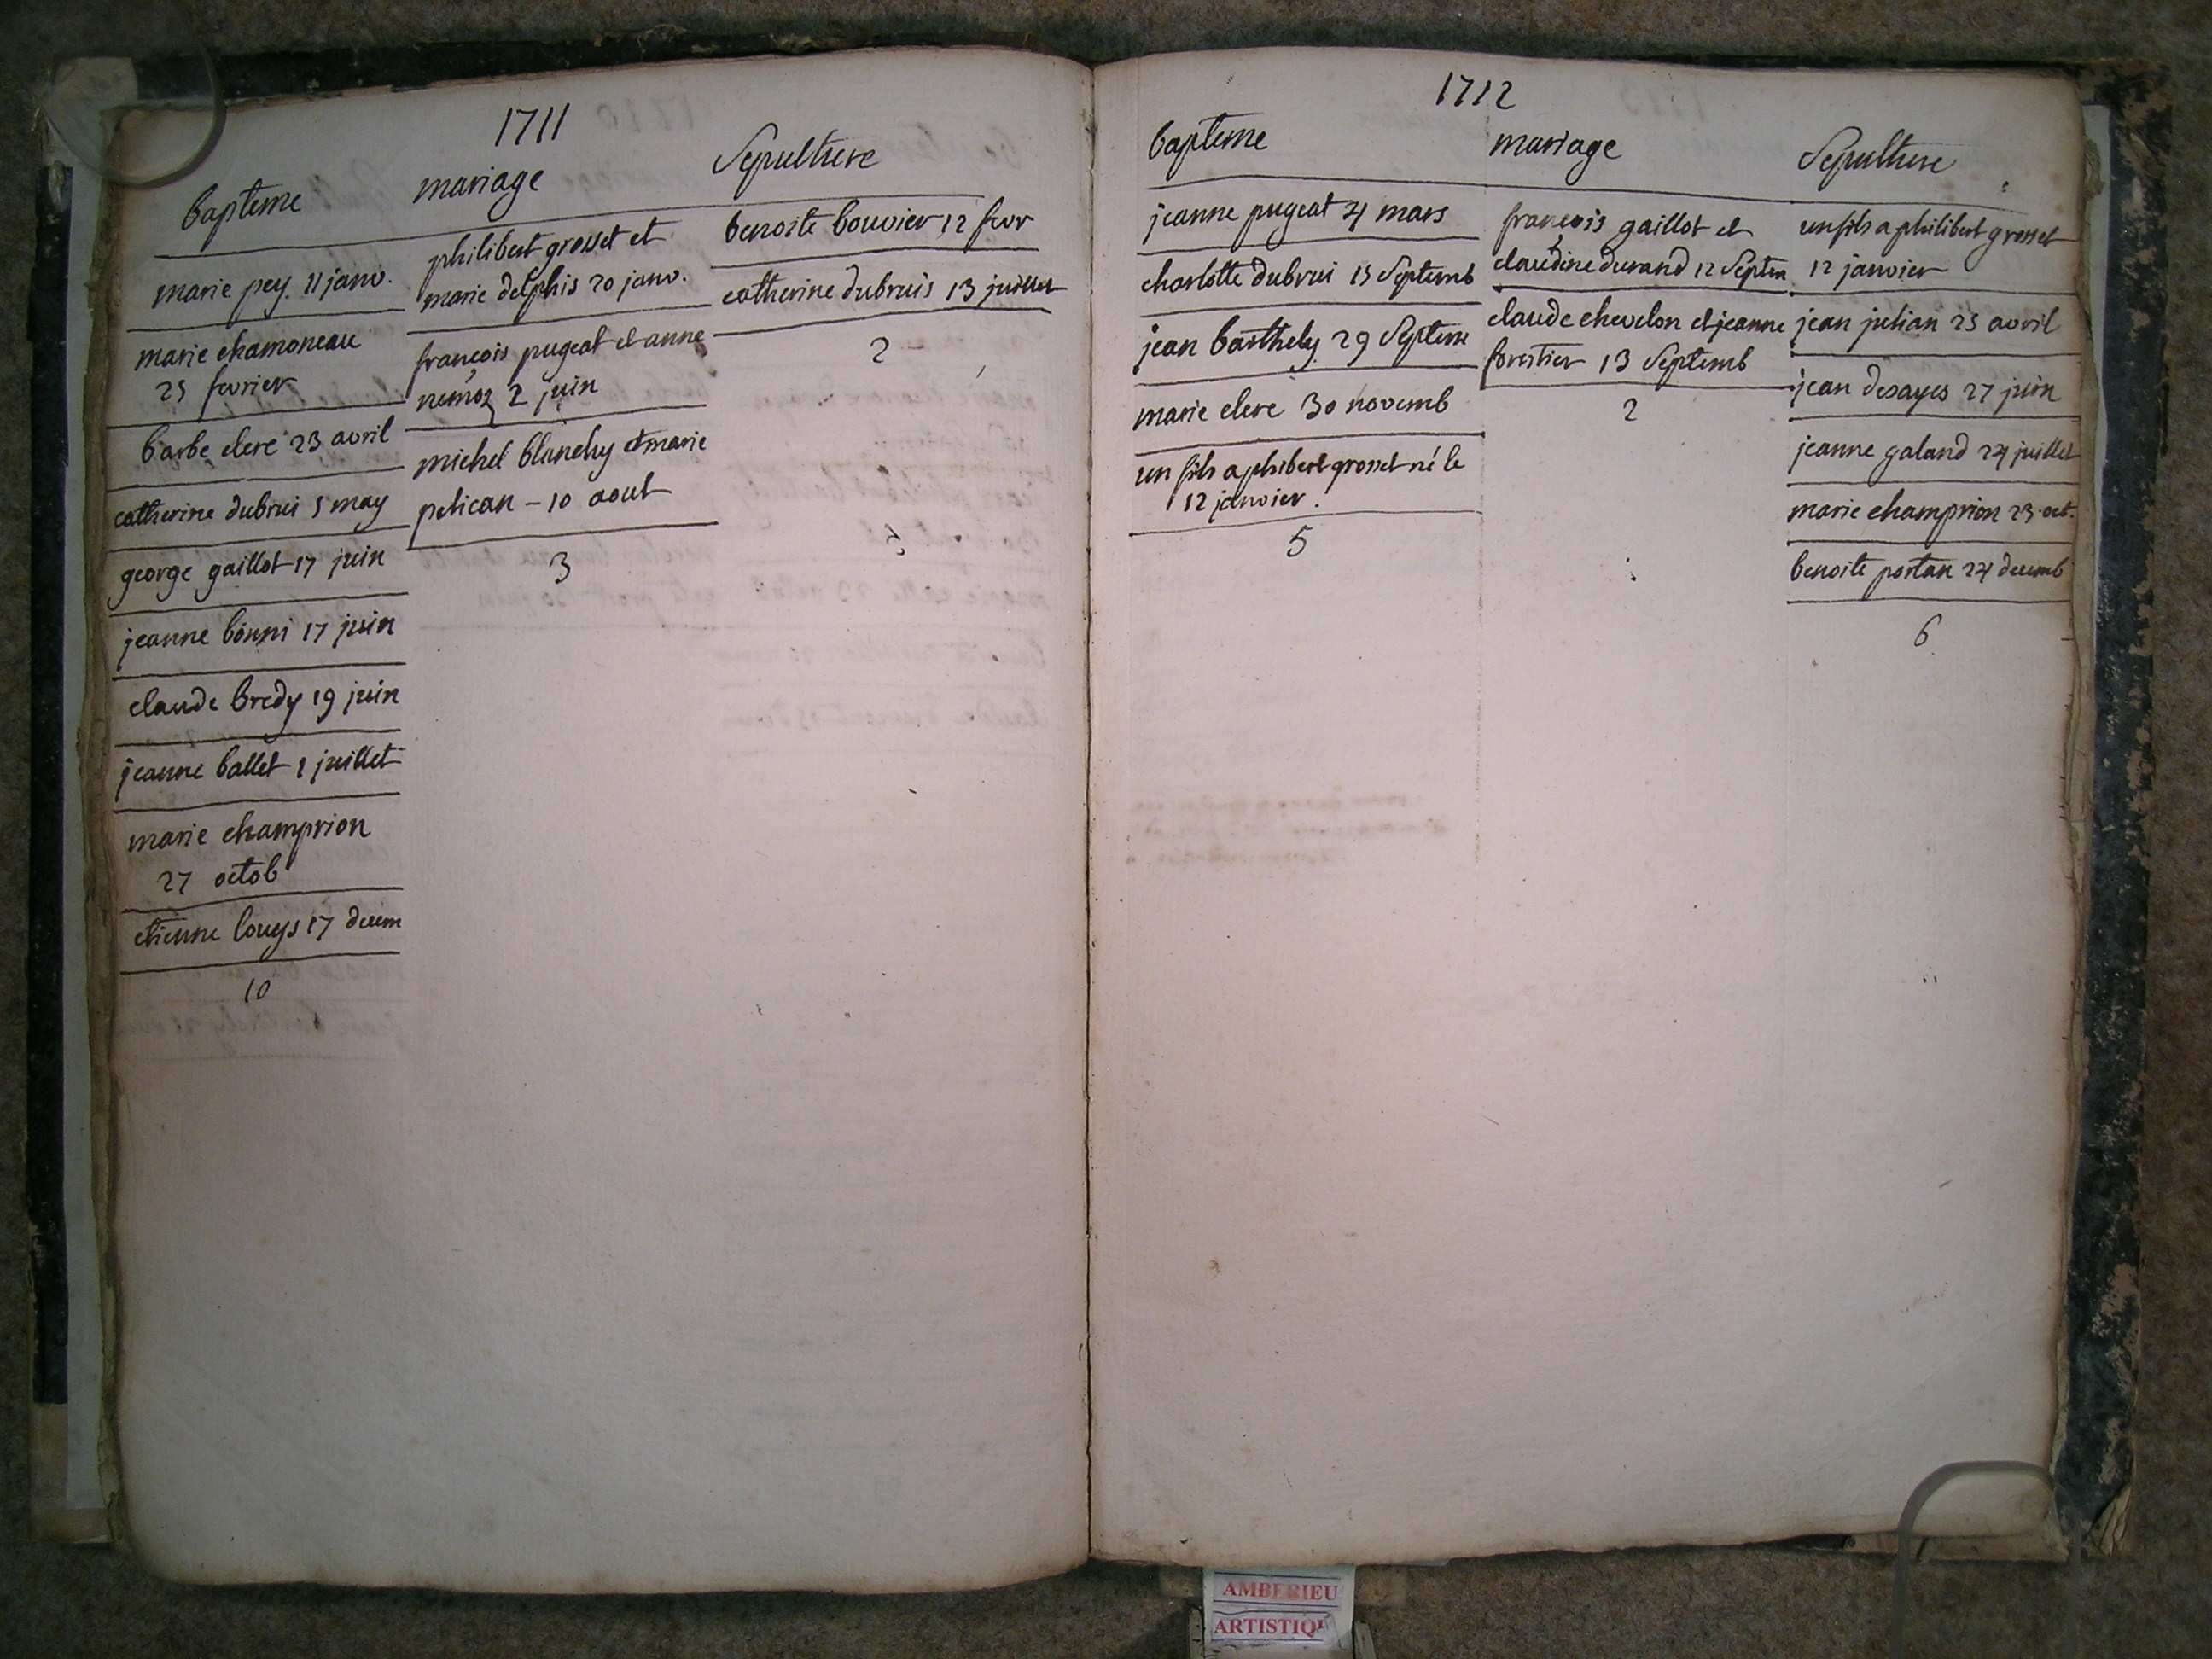 1711
bapteme
marie pey 11 janv.
marie chamoneau
25 fevrier
barbe clere 23 avril
catherine dubrui 5 may
george gaillot 17 juin
jeanne bonni 17 juin
claude bredy 19 juin
jeanne ballet 1 juillet
marie champrion
27 octob
etienne louys 17 decem
10
mariage
philibert grosset et
marie delphis 20 janv.
françois pugeat et anne
nemoz 2 juin
michel blanchy et marie
pelican - 10 aout
3
Sepulture
benoite bouvier 12 fevr
catherine dubruis 13 juillet
2
1712
bapteme
jeanne pugeat 24 mars
charlotte dubrui 15 Septemb
jean barthely 29 Septem
marie clere 30 novemb
un fils a phibert grosset né le
12 janvier.
5
mariage
françois gaillot et
claudine durand 12 Septem
claude chevelon et jeanne
forestier 13 Septemb
2
Sepulture
un fils a philibert grosset
12 janvier
jean julian 25 avril
jean desayes 27 juin
jeanne galand 24 juillet
marie champrion 23 oct.
benoite portan 24 decemb
6
AMBERIEU
ARTISTIQU